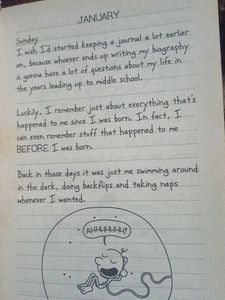 JANUARY
Sunday
I wish I'd started keeping a journal a lot earlier
on, because whoever ends up writing my biography
is gonna have a lot of questions about my life in
the years leading up to middle school.
Luckily, I remember just about everything that's
happened to me since I was born. In fact, I
can even remember stuff that happened to me
BEFORE I was born.
Back in those days it was just me swimming around
in the dark, doing backflips and taking naps
whenever I wanted.
AHHHHHH!